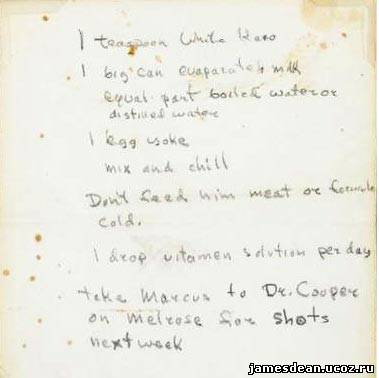 1 teaspoon White Karo
1 big can evaporated milk
equal part boiled water or
distilled water
1 egg yoke
mix and chill
Don't feed him meat or formula
cold.
1 drop vitamen solution per day
take Marcus to Dr. Cooper
on Melrose for shots
next week
jamesdean.ucoz.ru